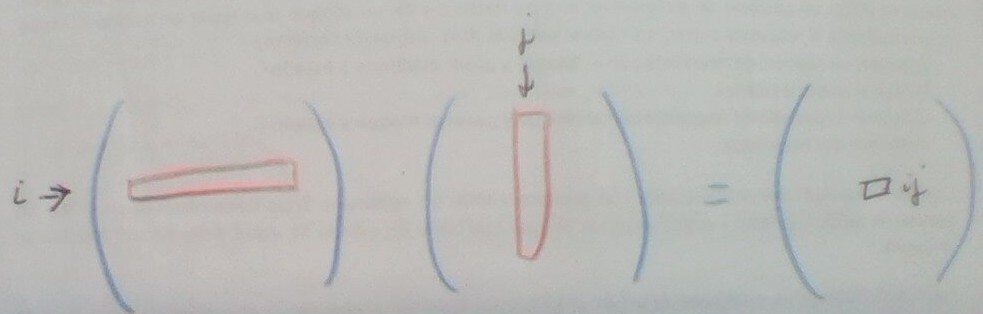 j
↓
i → ( ) · ( ) = ( □ ij )